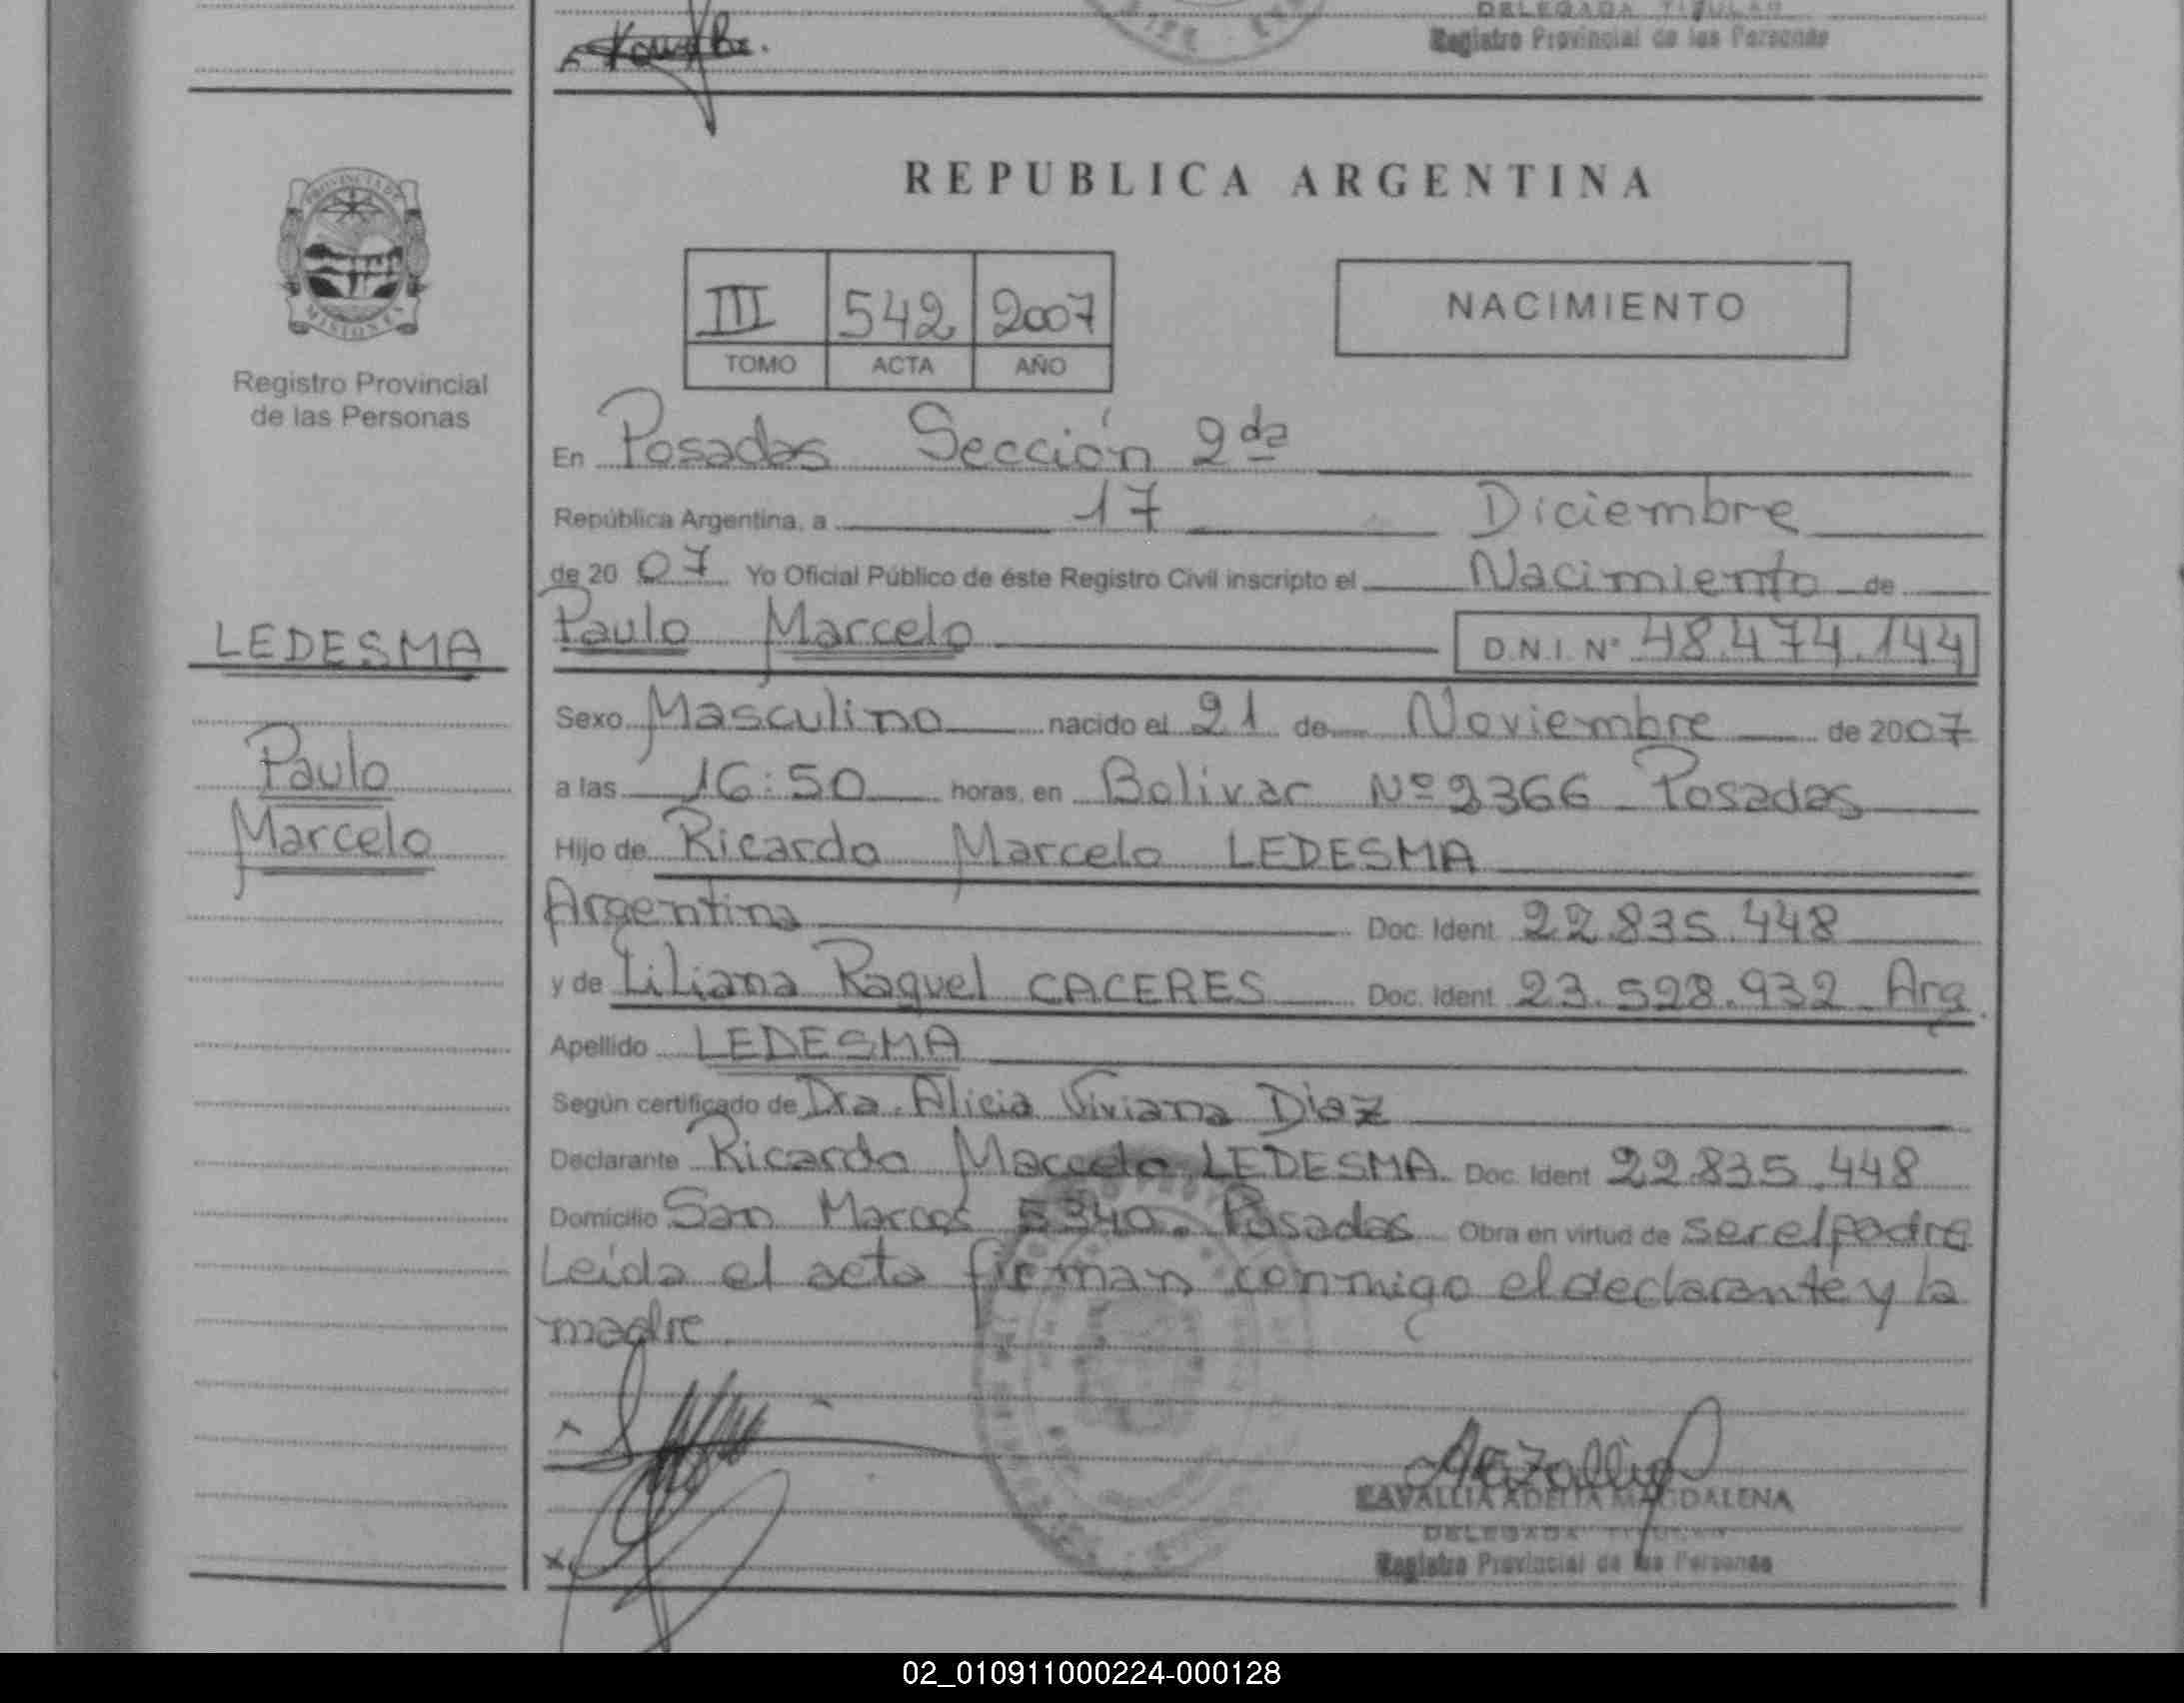 DELEGADA TITULAR
Registro Provincial de las Personas
PROVINCIA DE
MISIONES
Registro Provincial
de las Personas
REPUBLICA ARGENTINA
III 542 2007
TOMO ACTA AÑO
NACIMIENTO
En Posadas Sección 2da
República Argentina, a 17 Diciembre
de 2007 Yo Oficial Público de éste Registro Civil inscripto el Nacimiento de
LEDESMA
Paulo
Marcelo
Paulo Marcelo D.N.I. Nº 48.474.144
Sexo Masculino nacido el 21 de Noviembre de 2007
a las 16:50 horas, en Bolivar Nº 2366 Posadas
Hijo de Ricardo Marcelo LEDESMA
Argentina Doc. Ident. 22.835.448
y de Liliana Raquel CACERES Doc. Ident. 23.528.932 Arg.
Apellido LEDESMA
Según certificado de Dra. Alicia Viviana Diaz
Declarante Ricardo Marcelo LEDESMA Doc. Ident 22.835.448
Domicilio San Marcos 5340. Posadas Obra en virtud de ser el padre
Leida el acta firman conmigo el declarante y la
madre
CAVALLIA ADELIA MAGDALENA
DELEGADA TITULAR
Registro Provincial de las Personas
02_010911000224-000128